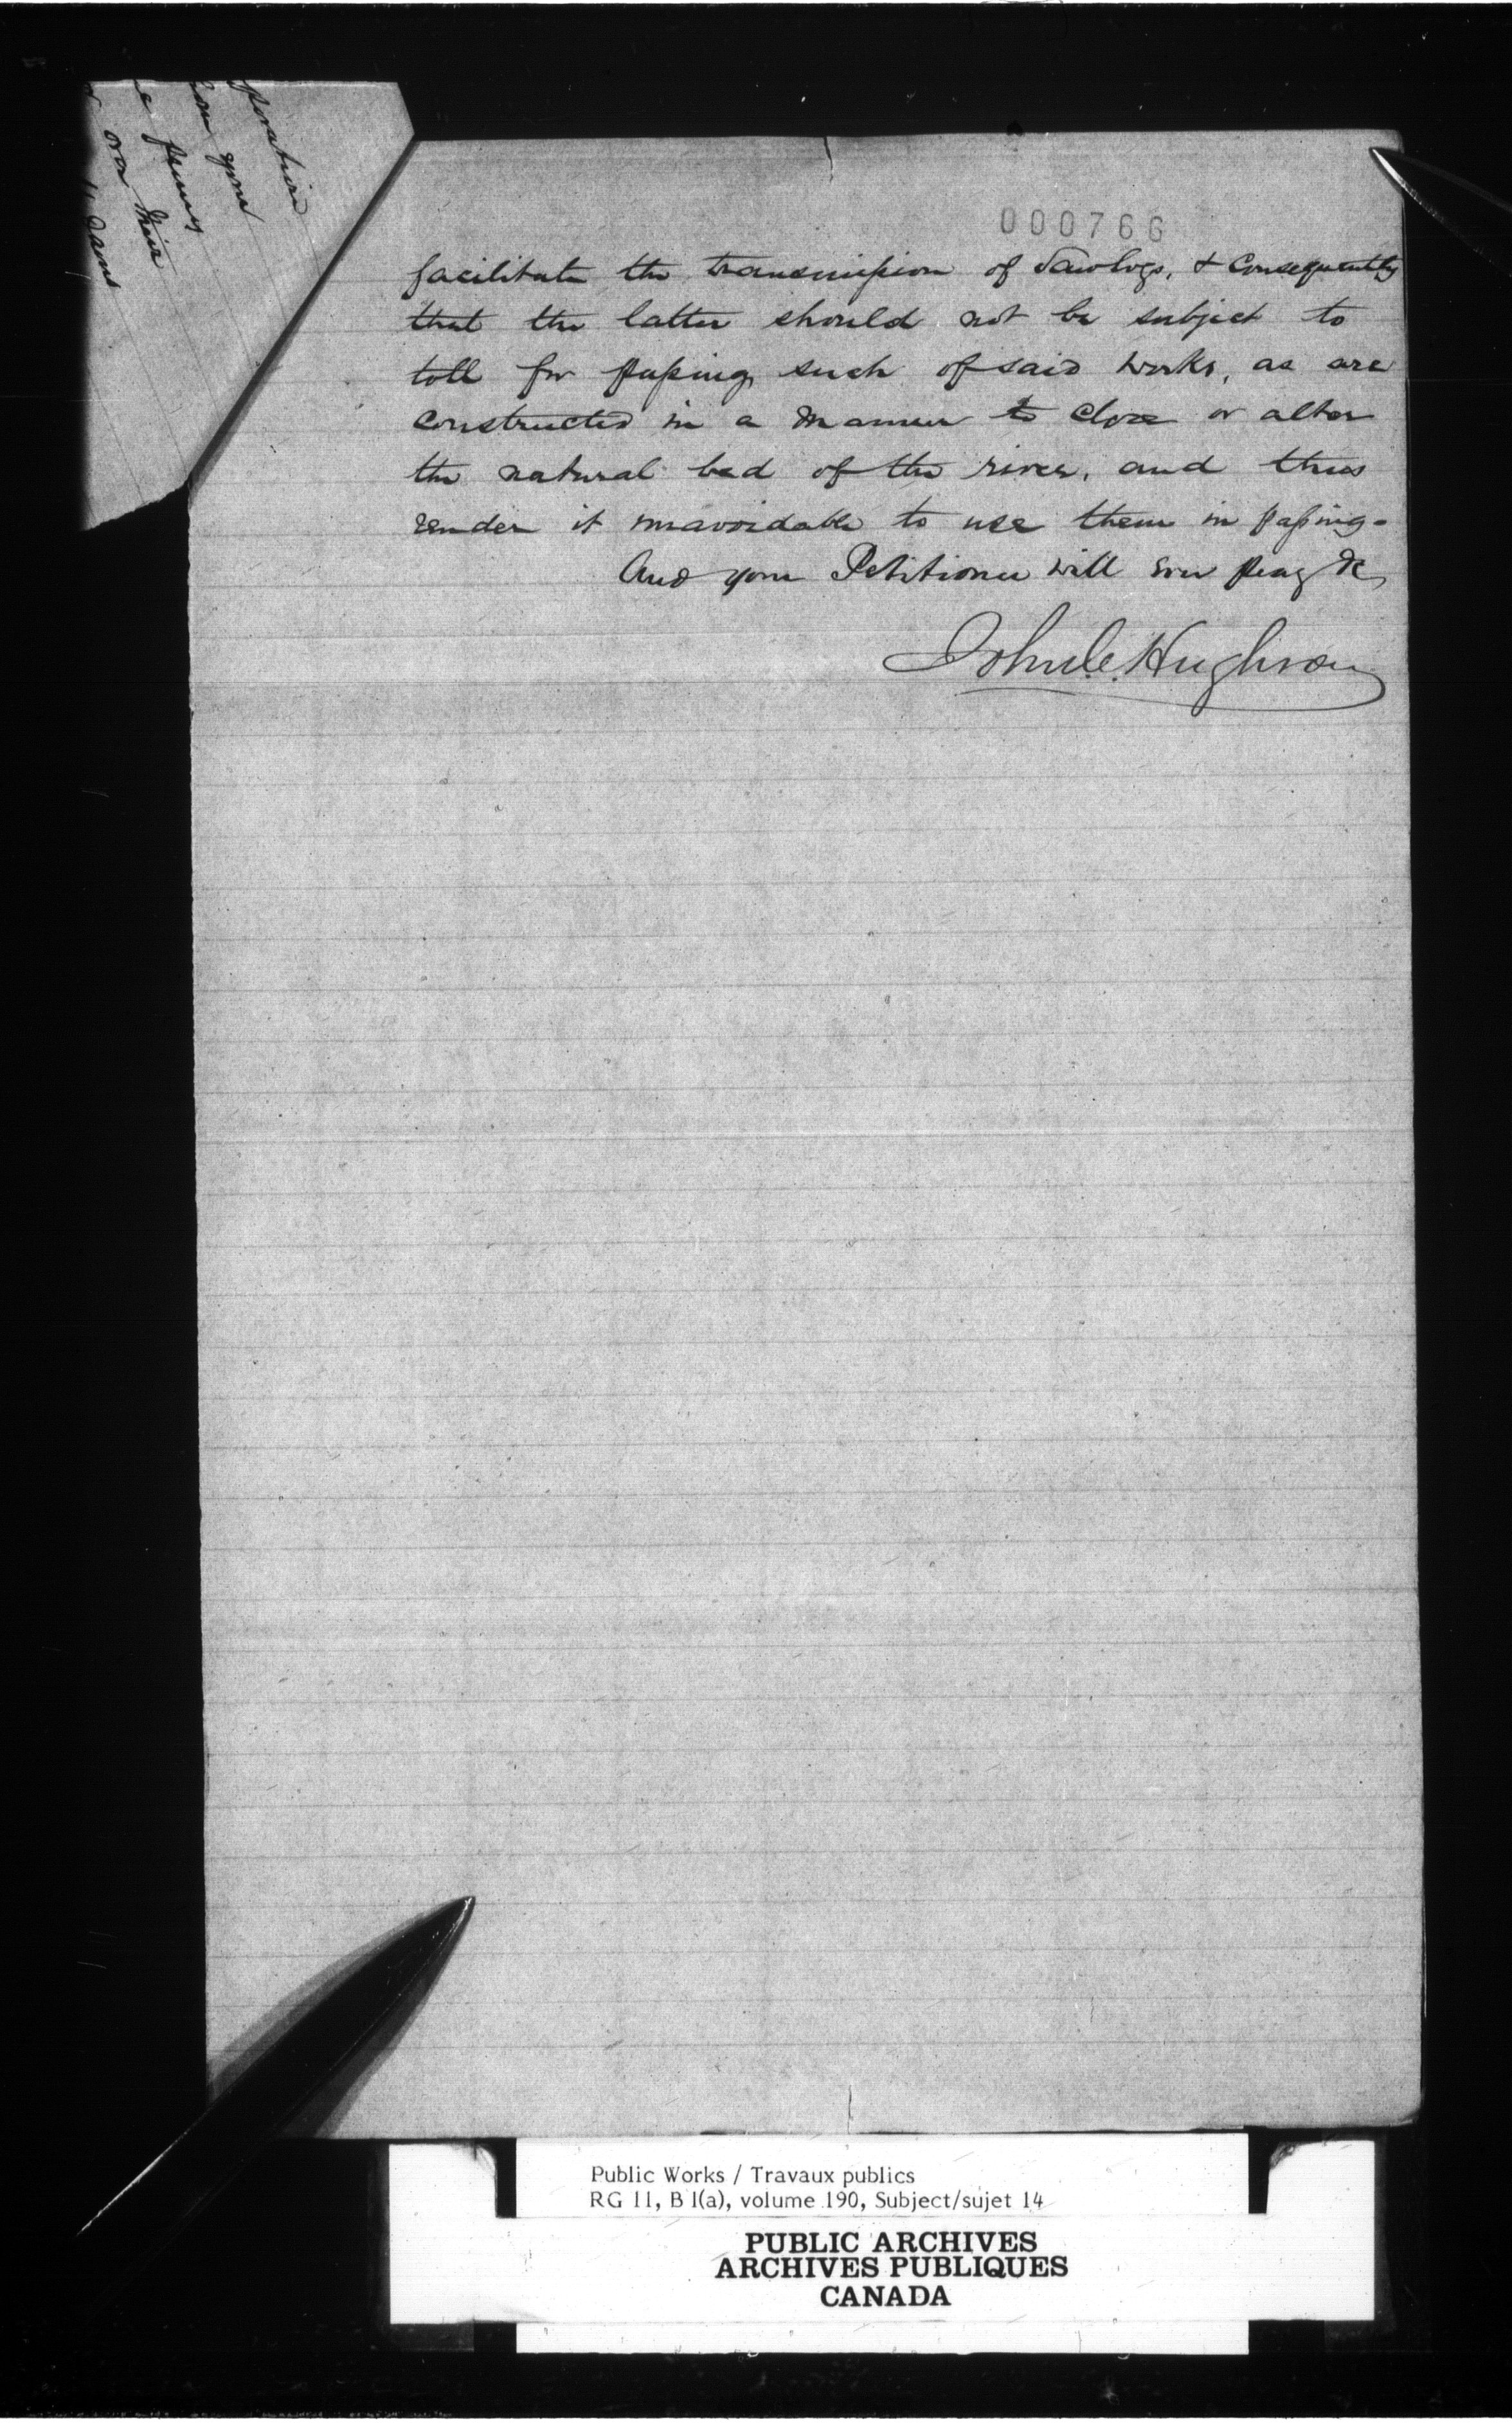 poration
your
penny
over their
Dams
000766
facilitate the transmission of Sawlogs, & Consequently
that the latter should not be subject to
toll for passing such of said works, as are
constructed in a manner to close or alter
the natural bed of the river, and thus
render it unavoidable to use them in passing.
And your Petitioner will ever pray &c,
John C. Hughson
Public Works / Travaux publics
RG 11, B 1(a), volume 190, Subject/sujet 14
PUBLIC ARCHIVES
ARCHIVES PUBLIQUES
CANADA